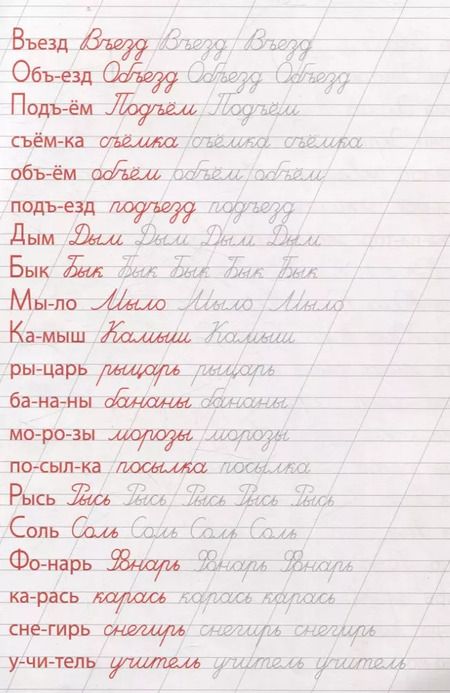 Въезд Въезд Въезд Въезд
Объ-езд Объезд Объезд Объезд
Подъ-ём Подъём Подъём
съём-ка съёмка съёмка съёмка
объ-ём объём объём объём
подъ-езд подъезд подъезд
Дым Дым Дым Дым Дым
Бык Бык Бык Бык Бык Бык
Мы-ло Мыло Мыло Мыло
Ка-мыш Камыш Камыш
ры-царь рыцарь рыцарь
ба-на-ны бананы бананы
мо-ро-зы морозы морозы
по-сыл-ка посылка посылка
Рысь Рысь Рысь Рысь Рысь Рысь
Соль Соль Соль Соль Соль
Фо-нарь Фонарь Фонарь Фонарь
ка-рась карась карась карась
сне-гирь снегирь снегирь снегирь
у-чи-тель учитель учитель учитель